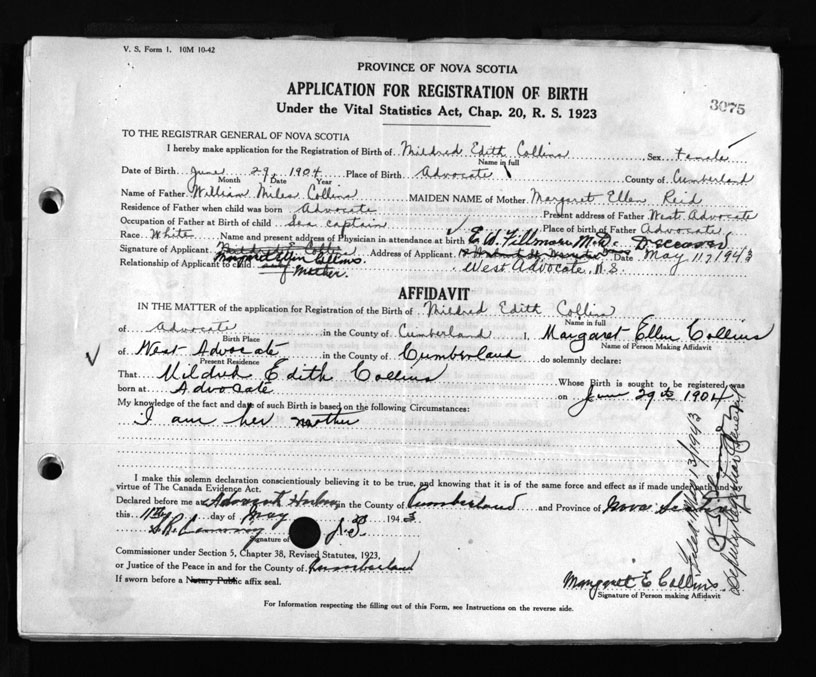 V. S. Form 1. 10M 10-42
PROVINCE OF NOVA SCOTIA
APPLICATION FOR REGISTRATION OF BIRTH
3075
Under the Vital Statistics Act, Chap. 20, R. S. 1923
TO THE REGISTRAR GENERAL OF NOVA SCOTIA
I hereby make application for the Registration of Birth of Mildred Edith Collins Sex female
Name in full
Date of Birth June 29 1904 Place of Birth Advocate County of Cumberland
Month Date Year
Name of Father William Miles Collins MAIDEN NAME of Mother Margaret Ellen Reid
Residence of Father when child was born Advocate Present address of Father West Advocate
Occupation of Father at Birth of child Sea captain Place of birth of Father Advocate
Race White Name and present address of Physician in attendance at birth E. W. Fillmore M.D. Deceased
Signature of Applicant Margaret Ellen Collins Address of Applicant Date May 11, 1943
Relationship of Applicant to child Mother West Advocate, N.S.
AFFIDAVIT
IN THE MATTER of the application for Registration of the Birth of Mildred Edith Collins
Name in full
of Advocate in the County of Cumberland I, Margaret Ellen Collins
Birth Place Name of Person Making Affidavit
of West Advocate in the County of Cumberland do solemnly declare:
Present Residence
That Mildred Edith Collins Whose Birth is sought to be registered, was
born at Advocate on June 29th 1904
My knowledge of the fact and date of such Birth is based on the following Circumstances:
I am her mother
I make this solemn declaration conscientiously believing it to be true, and knowing that it is of the same force and effect as if made under oath and by
virtue of The Canada Evidence Act.
Declared before me at Advocate Harbor in the County of Cumberland and Province of Nova Scotia
this 11th day of May 1943
Signature of J.P.
Commissioner under Section 5, Chapter 38, Revised Statutes, 1923,
or Justice of the Peace in and for the County of Cumberland
If sworn before a Notary Public affix seal.
Margaret E Collins
Signature of Person making Affidavit
For Information respecting the filling out of this Form, see Instructions on the reverse side.
Deputy Registrar General